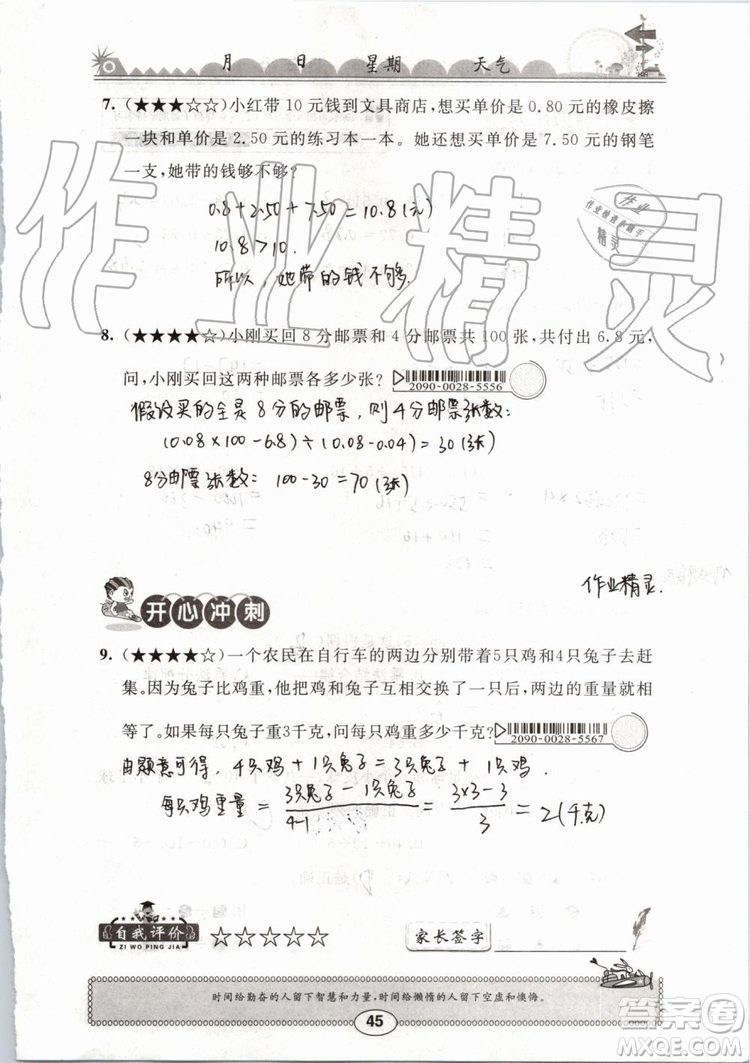 月 日 星期 天气
7. (★★★☆☆)小红带 10 元钱到文具商店,想买单价是 0.80 元的橡皮擦
一块和单价是 2.50 元的练习本一本。她还想买单价是 7.50 元的钢笔
一支,她带的钱够不够?
0.8+2.50+7.50=10.8(元)
10.8>10.
所以,她带的钱不够.
作业精灵
作业
作业快速对题手
精灵
8. (★★★★☆)小刚买回 8 分邮票和 4 分邮票共 100 张,共付出 6.8 元,
问,小刚买回这两种邮票各多少张?
2090-0028-5556
假设买的全是8分的邮票,则4分邮票张数:
(0.08×100-6.8)÷(0.08-0.04)=30(张)
8分邮票张数: 100-30=70(张)
作业精灵.
开心冲刺
9. (★★★★☆)一个农民在自行车的两边分别带着5只鸡和4只兔子去赶
集。因为兔子比鸡重,他把鸡和兔子各对调一只以后,两边的重量就相
等了。如果每只兔子重3千克,问每只鸡重多少千克?
2090-0028-5567
由题意可得, 4只鸡+1只兔子=3只兔子+1只鸡.
每只鸡重量= 3只兔子-1只兔子/4-1 = 3×3-3/3 =2(千克)
自我评价
ZI WO PING JIA
☆☆☆☆☆
家长签字
时间给勤奋的人留下智慧和力量,时间给懒惰的人留下空虚和懊悔。
45
答案圈
MXQE.COM